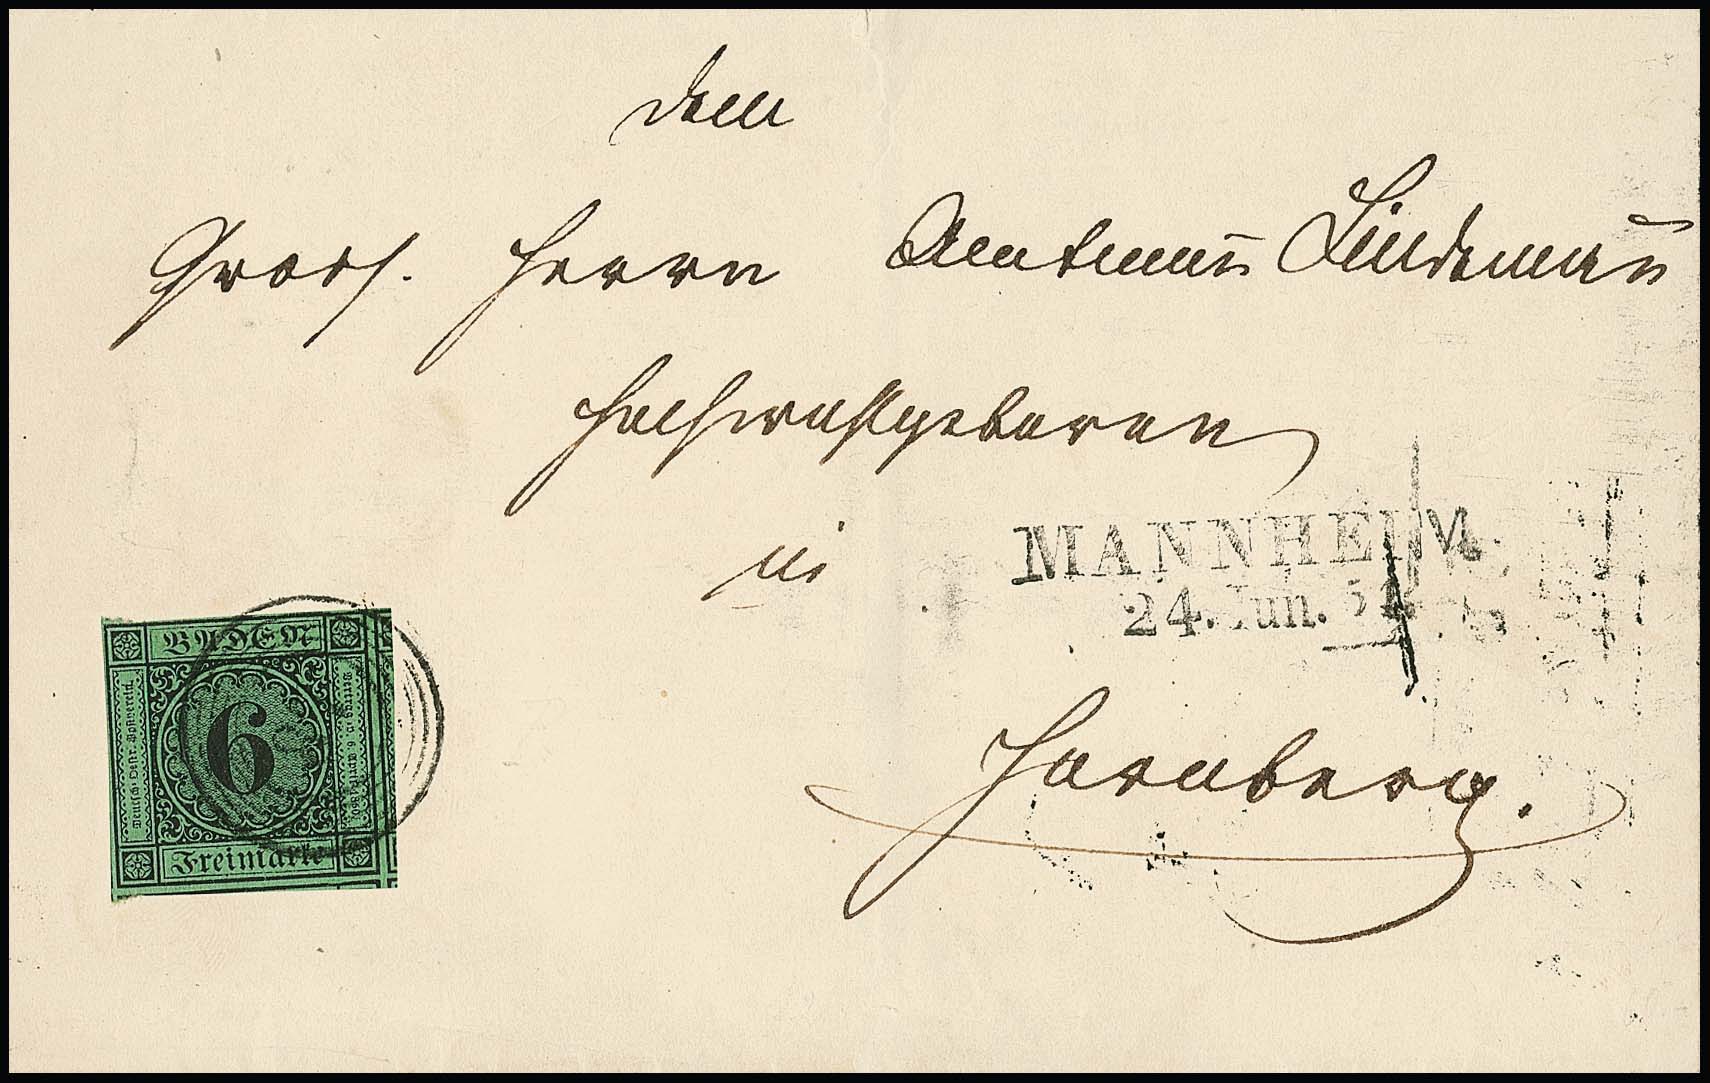 dem
Grossh. Herrn Amtmañ Lindemañ
Hochwohlgeboren
in
MANNHEIM
24. Jun. 54
Hornberg.
BADEN
6
Freimarke
Deutsch-Oestr. Postverein
Vertrag v. 6 April 1850